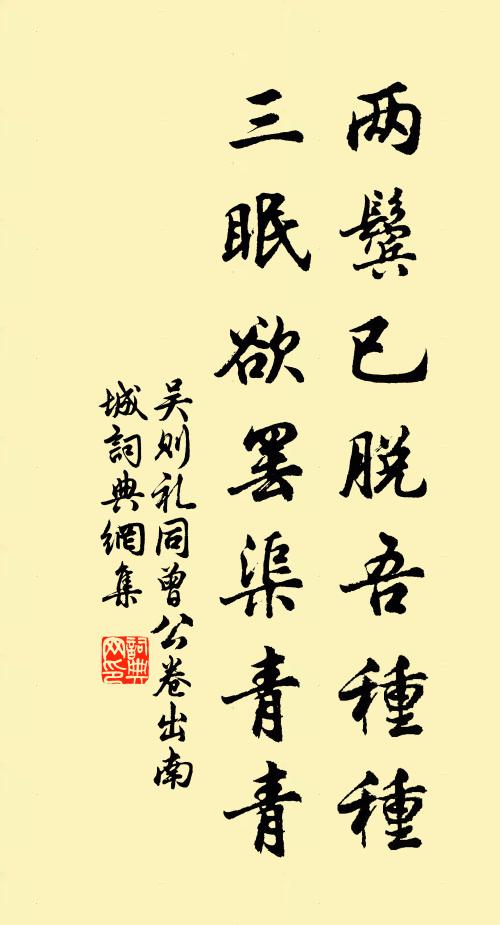 两鬓已脱吾種種
三眠欲罢渠青青
吴则礼同曾公卷出南
城詞典網集
詞典
网印